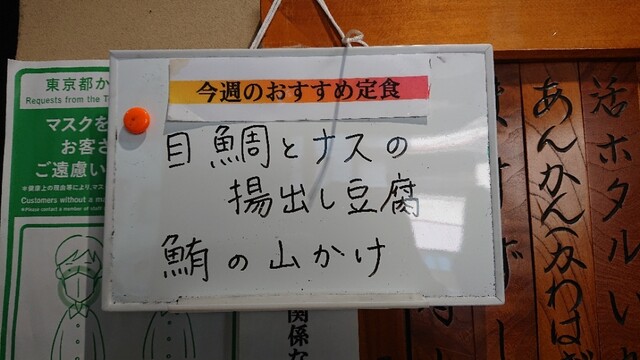 今週のおすすめ定食
目鯛とナスの
揚出し豆腐
鮪の山かけ
東京都か
Requests from the T
マスクを
お客さ
ご遠慮い
Customers without a ma
活ホタルい
あんかん
関係な